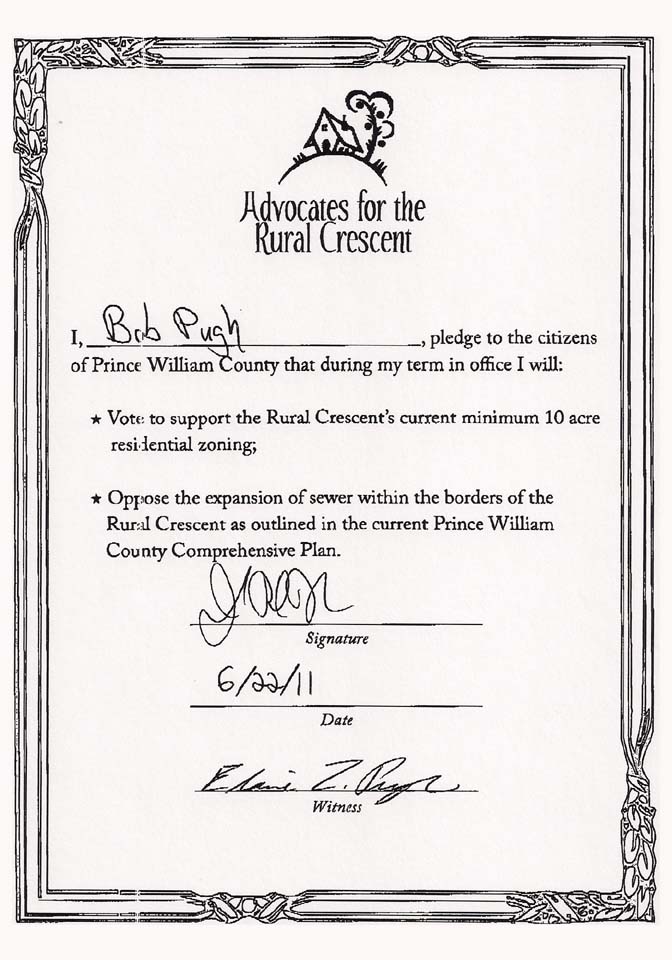 Advocates for the
Rural Crescent
I, Bob Pugh, pledge to the citizens
of Prince William County that during my term in office I will:
★ Vote to support the Rural Crescent's current minimum 10 acre
residential zoning;
★ Oppose the expansion of sewer within the borders of the
Rural Crescent as outlined in the current Prince William
County Comprehensive Plan.
Signature
6/22/11
Date
Elaine Z. Pugh
Witness